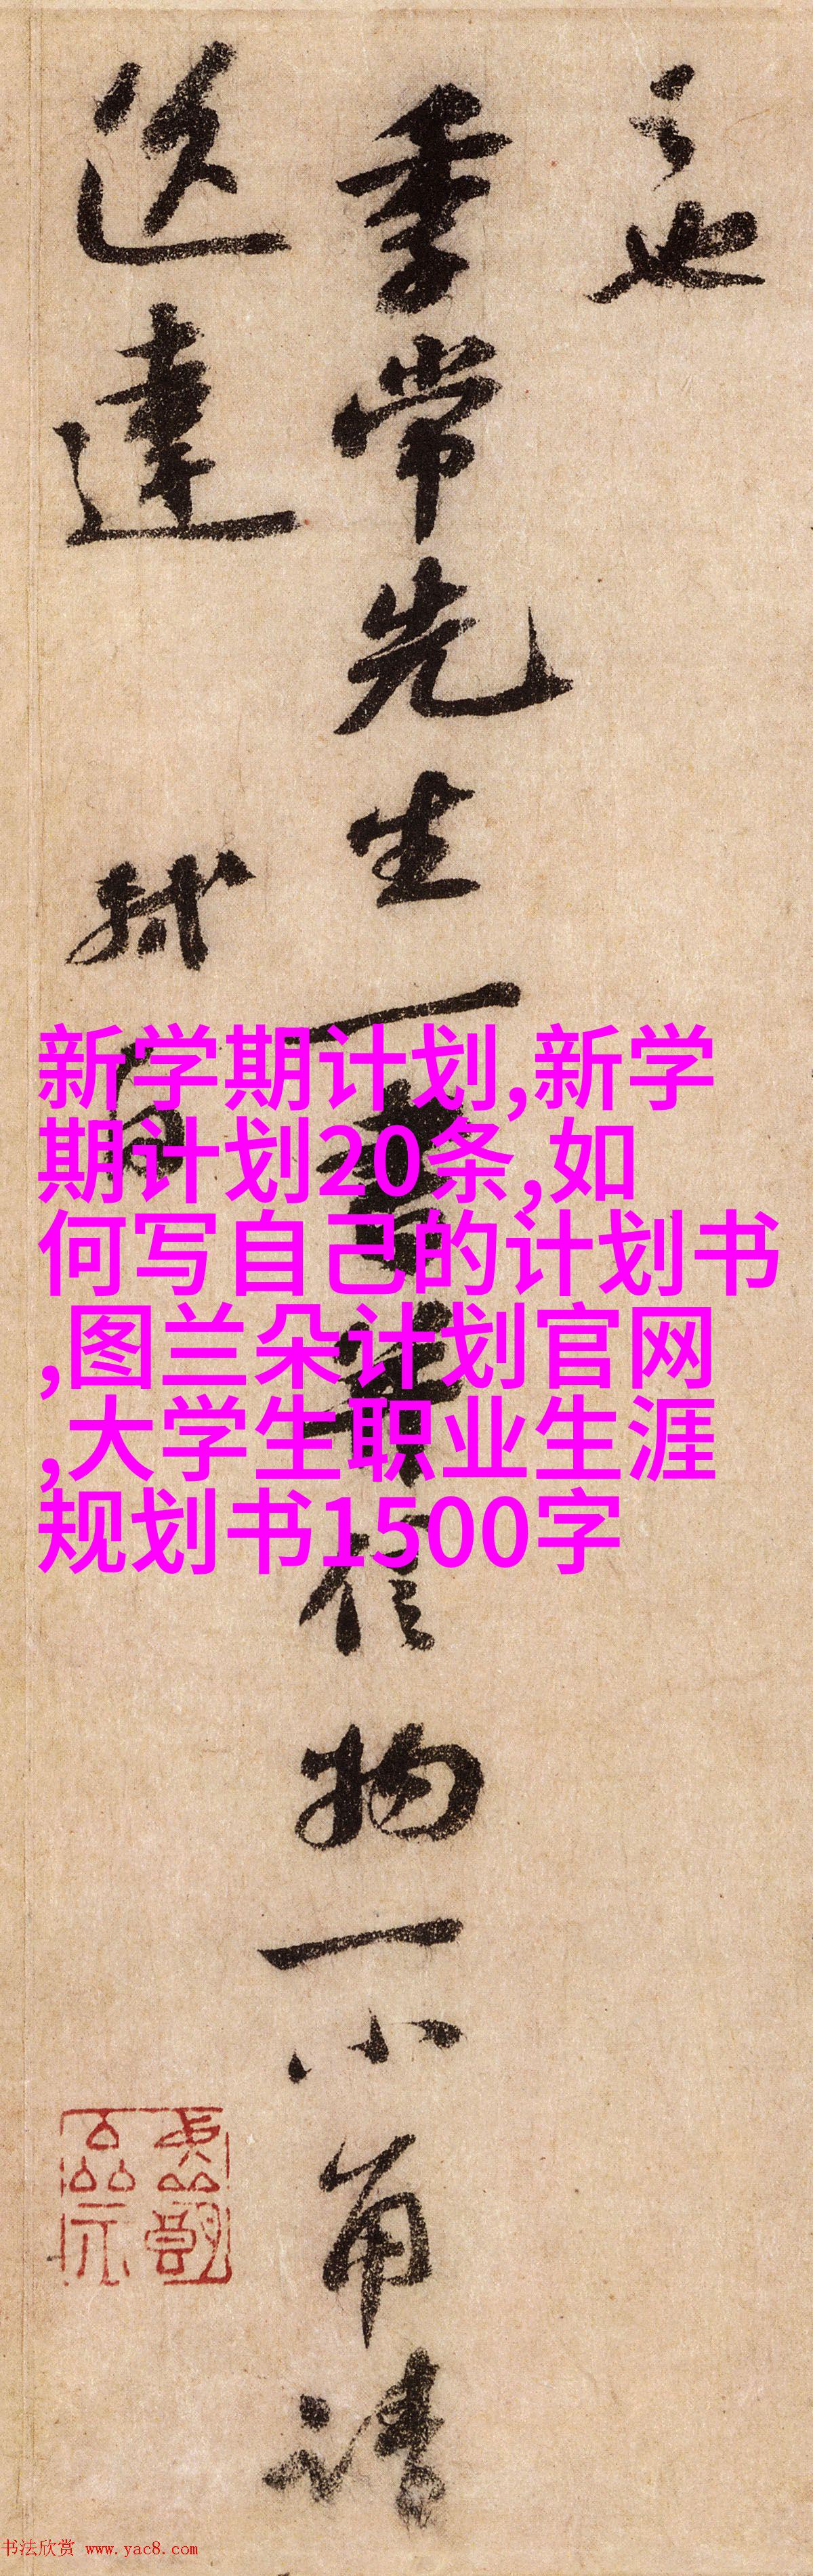 之也
季常先生一書并信物一小角請
送達 軾白
新学期计划,新学
期计划20条,如
何写自己的计划书
,图兰朵计划官网
,大学生职业生涯
规划书1500字
书法欣赏 www.yac8.com